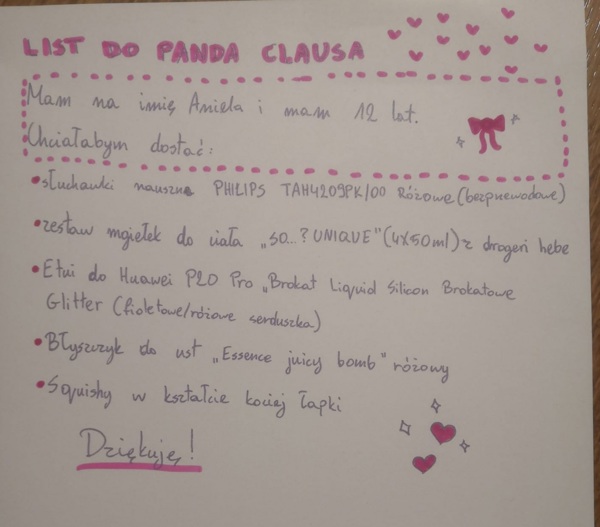 LIST DO PANDA CLAUSA
Mam na imię Aniela i mam 12 lat.
Chciałabym dostać:
• słuchawki nauszne PHILIPS TAH4209PK/00 Różowe (bezprzewodowe)
• zestaw mgiełek do ciała „SO...? UNIQUE" (4X50ml) z drogerii hebe
• Etui do Huawei P20 Pro „Brokat Liquid Silicon Brokatowe
Glitter (fioletowe/różowe serduszka)
• Błyszczyk do ust „Essence juicy bomb" różowy
• Squishy w kształcie kociej łapki
Dziękuję!